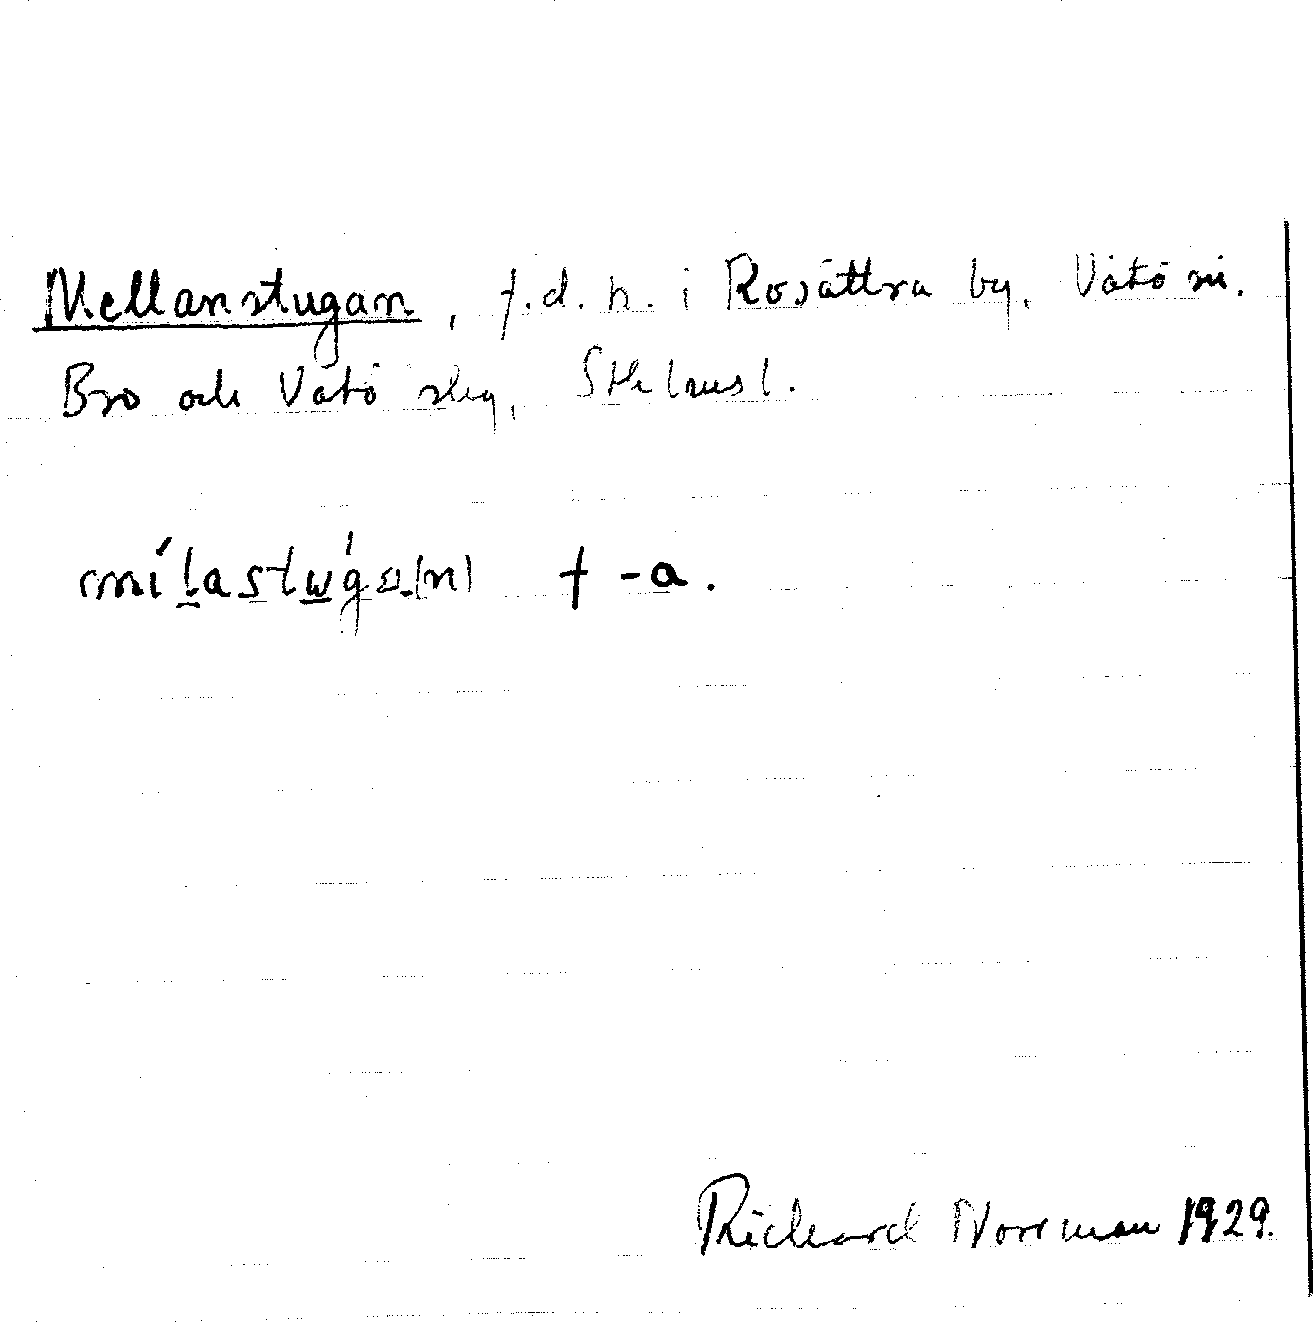 Mellanstugan, f.d. n. i Rosättra by. Vätö sn.
Bro och Vätö skg, Sthlmsl.
† -a.
Richard Norrman 1929.